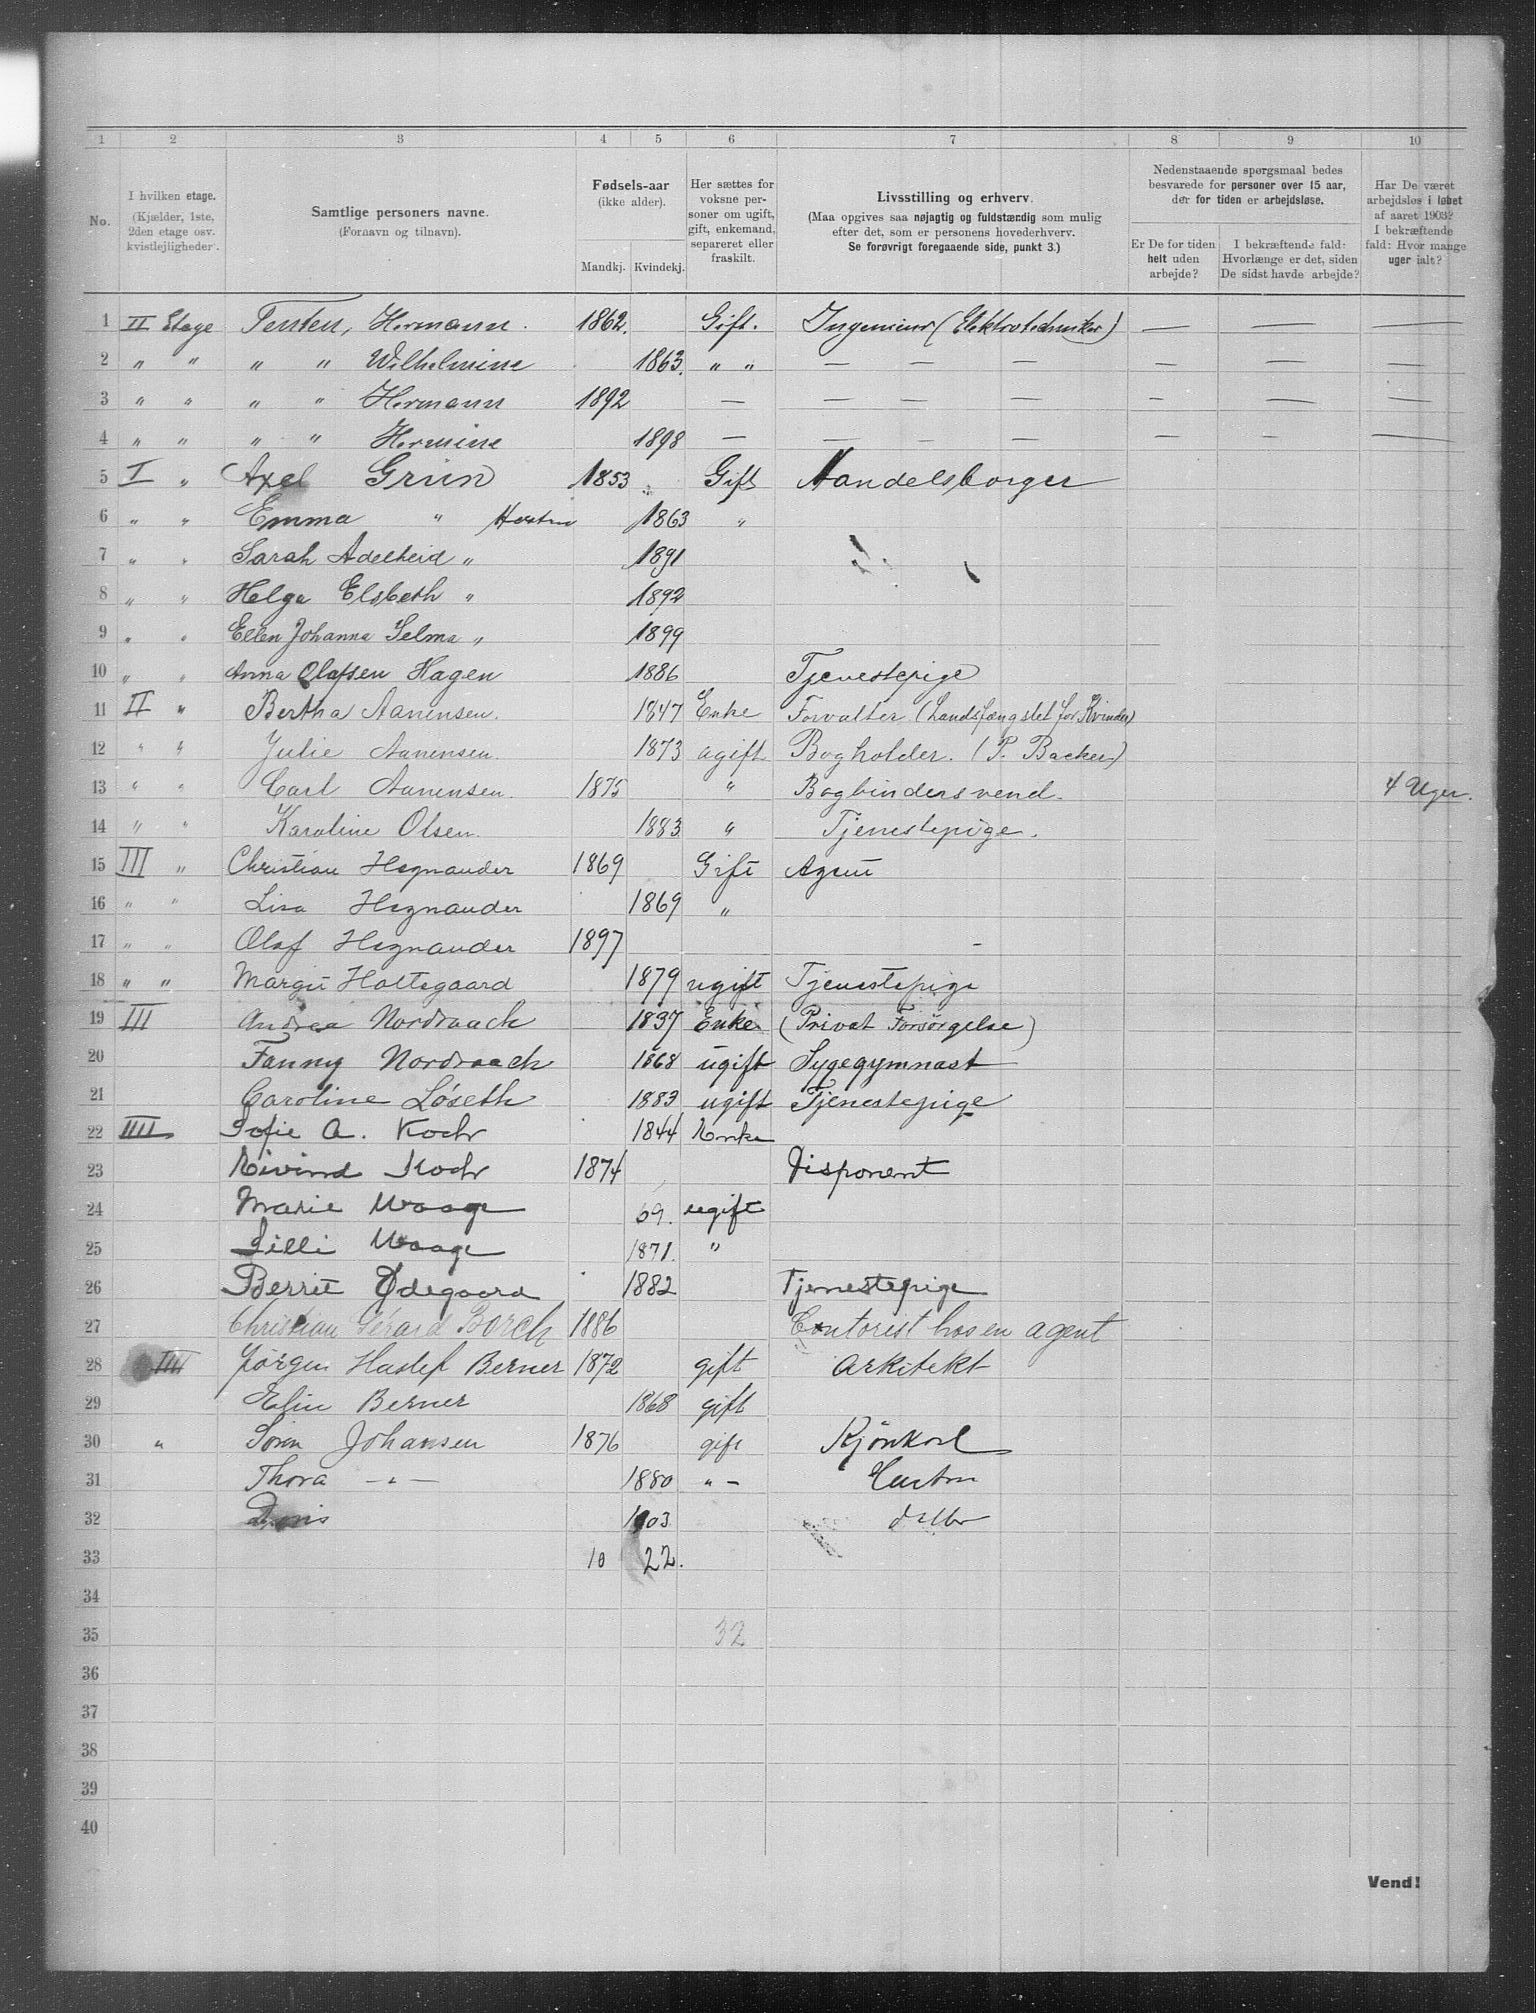 1 2 3 4 5 6 7 8 9 10
No.
I hvilken etage. (Kjælder, 1ste, 2den etage osv. kvistlejligheder.
Samtlige personers navne. (Fornavn og tilnavn).
Fødsels-aar (ikke alder).
Mandkj. Kvindekj.
Her sættes for voksne personer om ugift, gift, enkemand, separeret eller fraskilt.
Livsstilling og erhverv.
(Maa opgives saa nøjagtig og fuldstændig som mulig efter det, som er personens hovederhverv. Se forøvrigt foregaaende side, punkt 3.)
Nedenstaaende spørgsmaal bedes besvarede for personer over 15 aar, der for tiden er arbejdsløse.
Er De for tiden helt uden arbejde?
I bekræftende fald: Hvorlænge er det, siden De sidst havde arbejde?
Har De været arbejdsløs i løbet af aaret 1903? I bekræftende fald: Hvor mange uger ialt?
1 II Etage Tensten, Hermann. 1862. Gift. Ingeniør (Elektrotekniker) — — —
2 " " " " Wilhelmine 1863. " " — — — — — —
3 " " " " Hermann 1892 — — — — — — —
4 " " " " Hermine 1898 — — — — — — —
5 I " Axel Grün 1853 Gift Handelsborger
6 " " Emma " Hustru 1863 "
7 " " Sarah Adelheid " 1891
8 " " Helga Elsbeth " 1892
9 " " Ellen Johanna Selma " 1899
10 " " Anna Olafsen Hagen 1886 Tjenestepige
11 II " Bertha Aanensen. 1847 Enke Forvalter (Landsfængslet for Kvinder)
12 " " Julie Aanensen. 1873 ugift Bogholder. (P. Backer)
13 " " Carl Aanensen. 1875 " Bogbindersvend. 4 Uger.
14 " " Karoline Olsen. 1883 " Tjenestepige.
15 III " Christian Hegnander 1869 Gift Agent
16 " " Lisa Hegnander 1869 "
17 " " Olaf Hegnander 1897 -
18 " " Margit Holtegaard 1879 ugift Tjenestepige
19 III Andrea Nordraach 1837 Enke (Privat Forsørgelse)
20 Fanny Nordraach 1868 ugift Sygegymnast
21 Caroline Løseth 1883 ugift Tjenestepige
22 IIII Sofie A. Koch 1844 Enke
23 Eivind Koch 1874 Disponent
24 Marie Waage 69. ugift
25 Lilli Waage 1871. "
26 Berrit Ødegaard 1882 Tjenestepige
27 Christian Gérard Borch 1886 Contorist hos en agent
28 IIII Jørgen Haslef Berner 1872 gift Arkitekt
29 Elin Berner 1868 gift
30 " Søren Johansen 1876 gift
31 Thora — " — 1880 " — Hustru
32 Doris 1903 datter
33 10 22.
34
35 32
36
37
38
39
40
Vend!